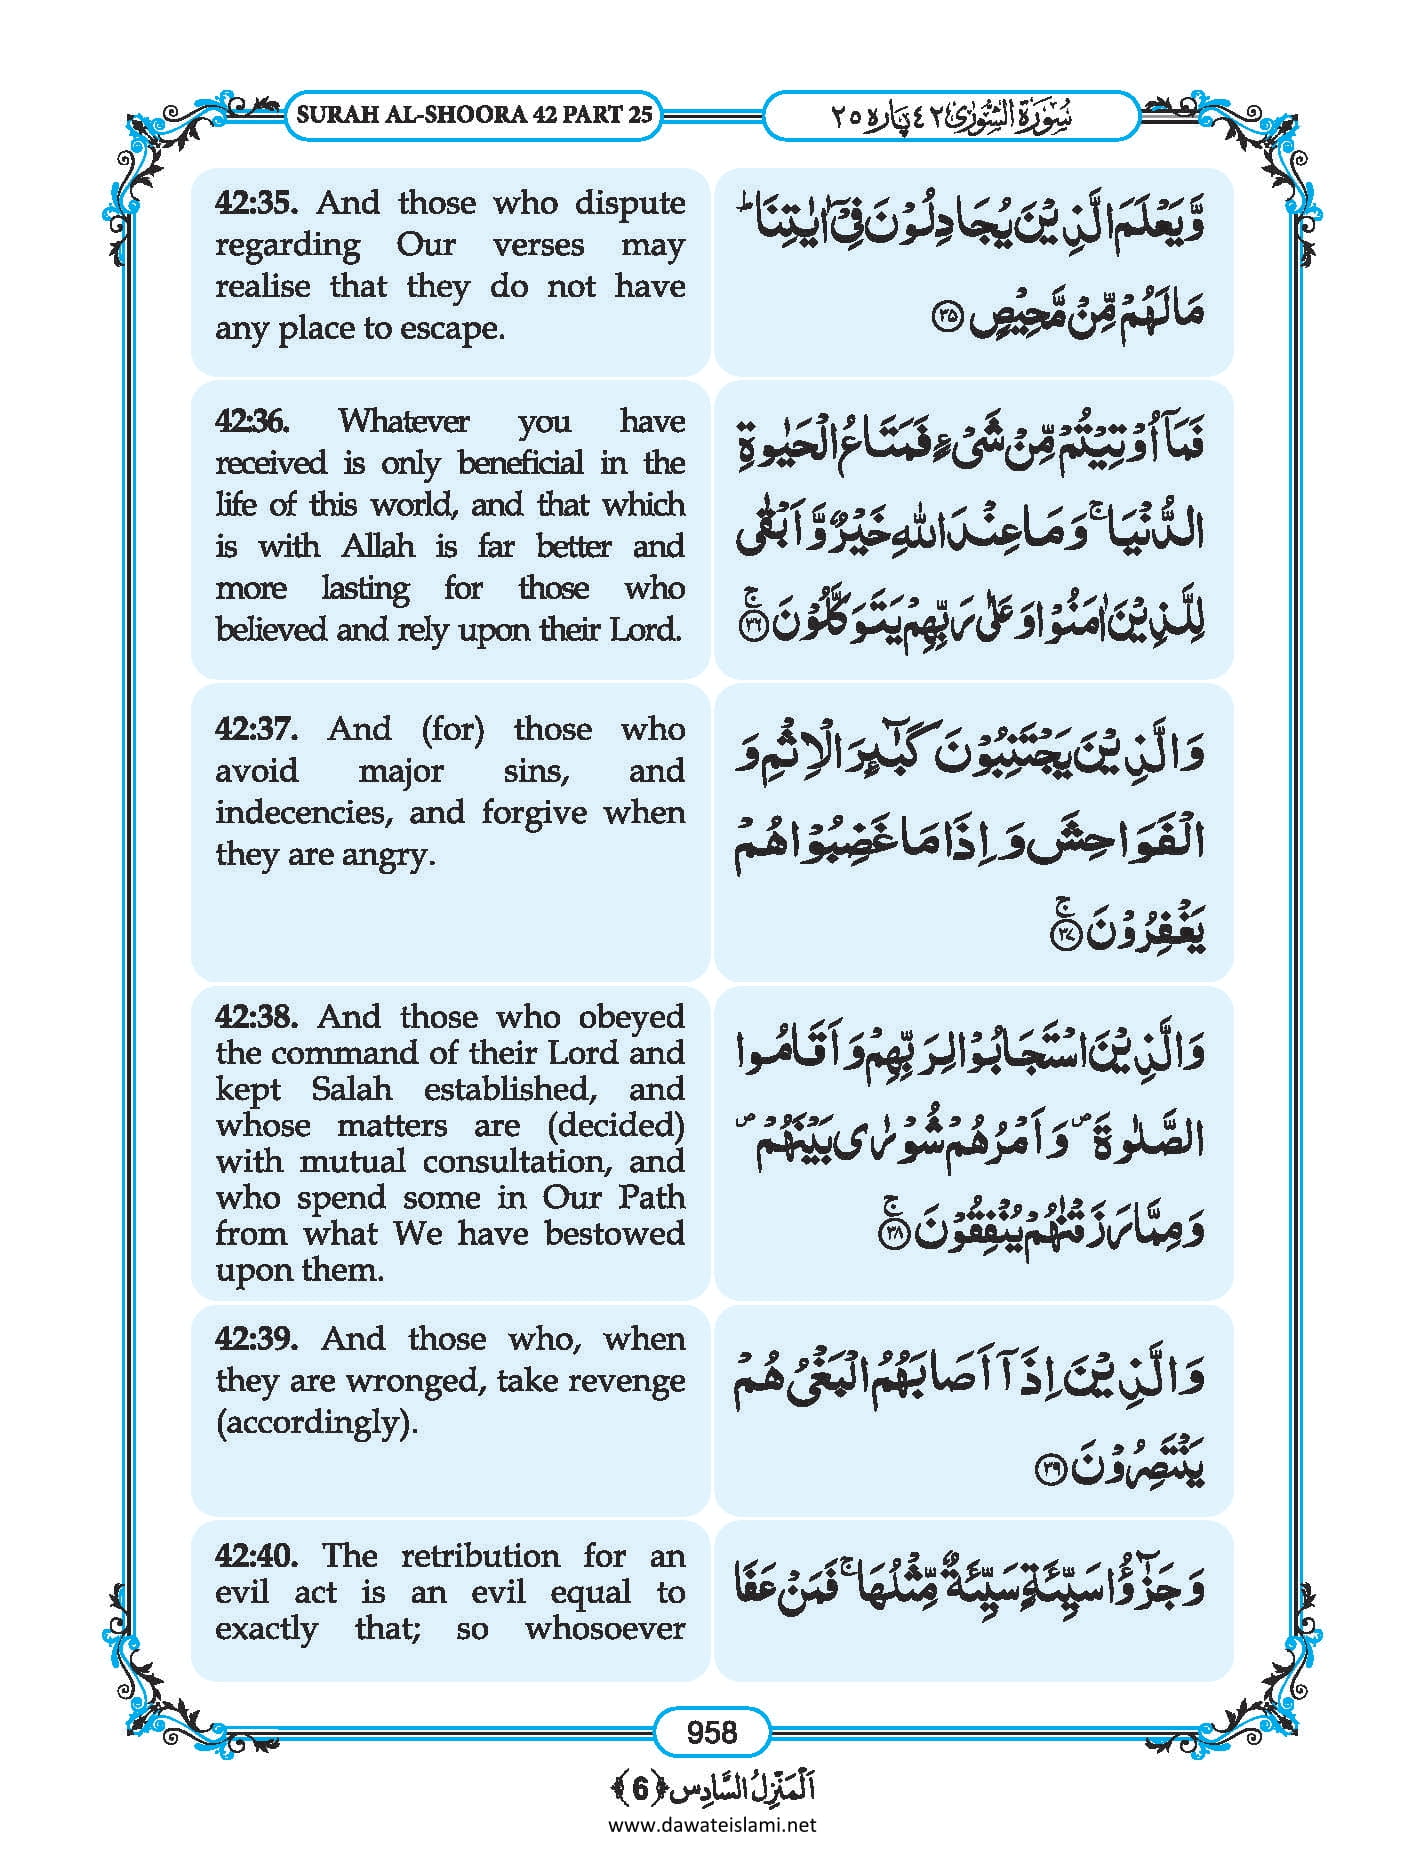 SURAH AL-SHOORA 42 PART 25
سُوْرَةُ الشُّوْرٰى ٤٢ پاره ٢٥
42:35. And those who dispute
regarding Our verses may
realise that they do not have
any place to escape.
وَّيَعْلَمَ الَّذِيْنَ يُجَادِلُوْنَ فِيْۤ اٰيٰتِنَا ؕ
مَا لَهُمْ مِّنْ مَّحِيْصٍ ﴿۳۵﴾
42:36. Whatever you have
received is only beneficial in the
life of this world, and that which
is with Allah is far better and
more lasting for those who
believed and rely upon their Lord.
فَمَاۤ اُوْتِيْتُمْ مِّنْ شَىْءٍ فَمَتَاعُ الْحَيٰوةِ
الدُّنْيَا ۚ وَمَا عِنْدَ اللهِ خَيْرٌ وَّ اَبْقٰى
لِلَّذِيْنَ اٰمَنُوْا وَعَلٰى رَبِّهِمْ يَتَوَكَّلُوْنَ ﴿ۚ۳۶﴾
42:37. And (for) those who
avoid major sins, and
indecencies, and forgive when
they are angry.
وَالَّذِيْنَ يَجْتَنِبُوْنَ كَبٰٓئِرَ الْاِثْمِ وَ
الْفَوَاحِشَ وَ اِذَا مَا غَضِبُوْا هُمْ
يَغْفِرُوْنَ ﴿ۚ۳۷﴾
42:38. And those who obeyed
the command of their Lord and
kept Salah established, and
whose matters are (decided)
with mutual consultation, and
who spend some in Our Path
from what We have bestowed
upon them.
وَالَّذِيْنَ اسْتَجَابُوْا لِرَبِّهِمْ وَ اَقَامُوا
الصَّلٰوةَ ۪ وَ اَمْرُهُمْ شُوْرٰى بَيْنَهُمْ ۪
وَ مِمَّا رَزَقْنٰهُمْ يُنْفِقُوْنَ ﴿ۚ۳۸﴾
42:39. And those who, when
they are wronged, take revenge
(accordingly).
وَالَّذِيْنَ اِذَاۤ اَصَابَهُمُ الْبَغْىُ هُمْ
يَنْتَصِرُوْنَ ﴿۳۹﴾
42:40. The retribution for an
evil act is an evil equal to
exactly that; so whosoever
وَ جَزٰٓؤُا سَيِّئَةٍ سَيِّئَةٌ مِّثْلُهَا ۚ فَمَنْ عَفَا
958
اَلْمَنْزِلُ السَّادِس ﴿6﴾
www.dawateislami.net